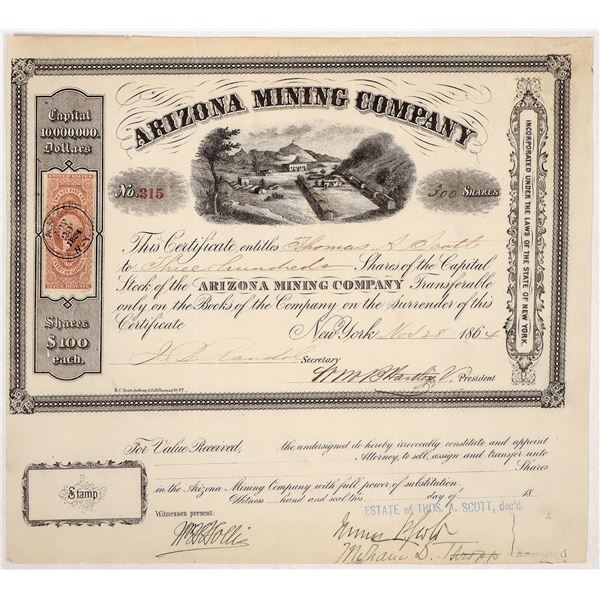 ARIZONA MINING COMPANY
Capital
10.000.000.
Dollars
Shares
$100
each.
INCORPORATED UNDER THE LAWS OF THE STATE OF NEW YORK.
No. 315
300 SHARES
This Certificate entitles Thomas A. Scott
to Three hundred Shares of the Capital
Stock of the ARIZONA MINING COMPANY Transferable
only on the Books of the Company on the Surrender of this
Certificate
New York Nov 28 1864
Secretary
President
For Value Received, the undersigned do hereby irrevocably constitute and appoint
Attorney, to sell, assign and transfer unto
Shares
in the Arizona Mining Company with full power of substitution.
Witness hand and seal this day of 18
Stamp
Witnesses present:
ESTATE of THOS. A. SCOTT, dec'd.